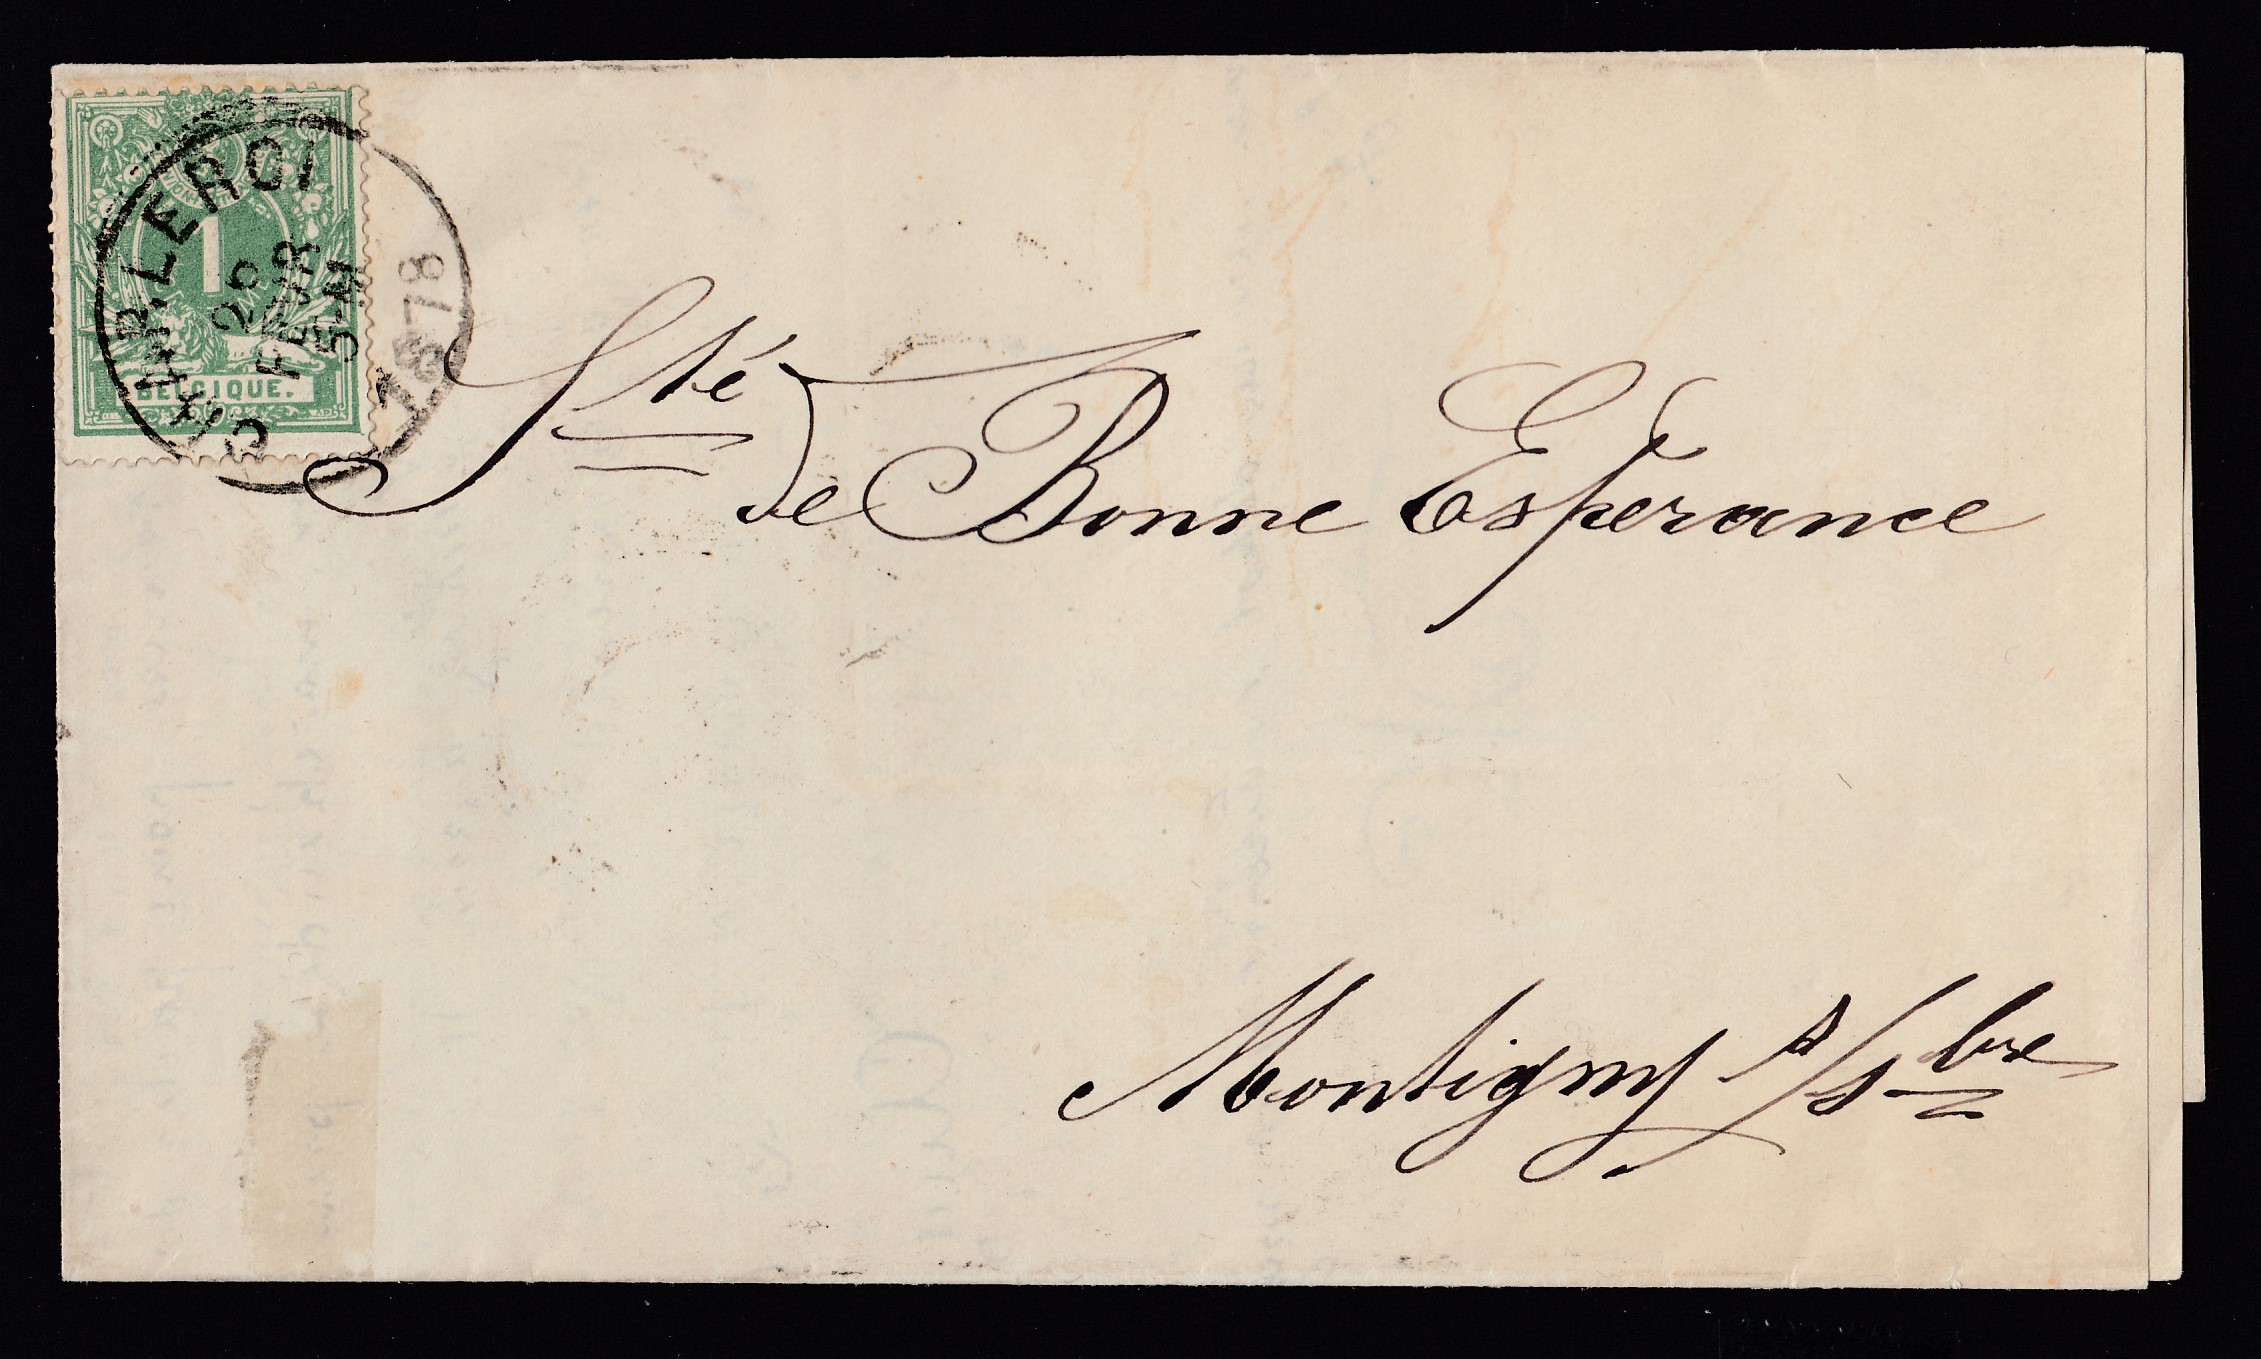 1
BELGIQUE.
CHARLEROI
26
FEVR
5-M
1878
Sté
de Bonne Espérance
Montigny s/Sbre